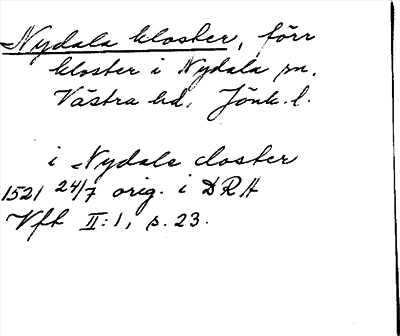 Nydala kloster, förr
kloster i Nydala sn.
Västra hd, Jönk. l.
i Nydals closter
1521 24/7 orig. i DRA
Vfk II:1, s. 23.